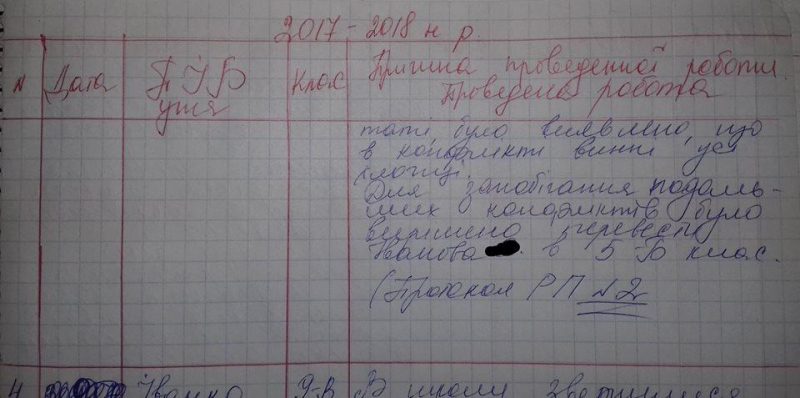 2017 - 2018 н. р.
N Дата ПІБ учня Клас Причина проведенної роботи.
Проведена робота
таті було виявлено, що
в конфлікті винні усі
хлопці.
Для запобігання подаль-
ших конфліктів було
вирішено перевести
Іванова в 5-Б клас.
(Протокол РП №2
4 Іванко 9-В В школу звернулися